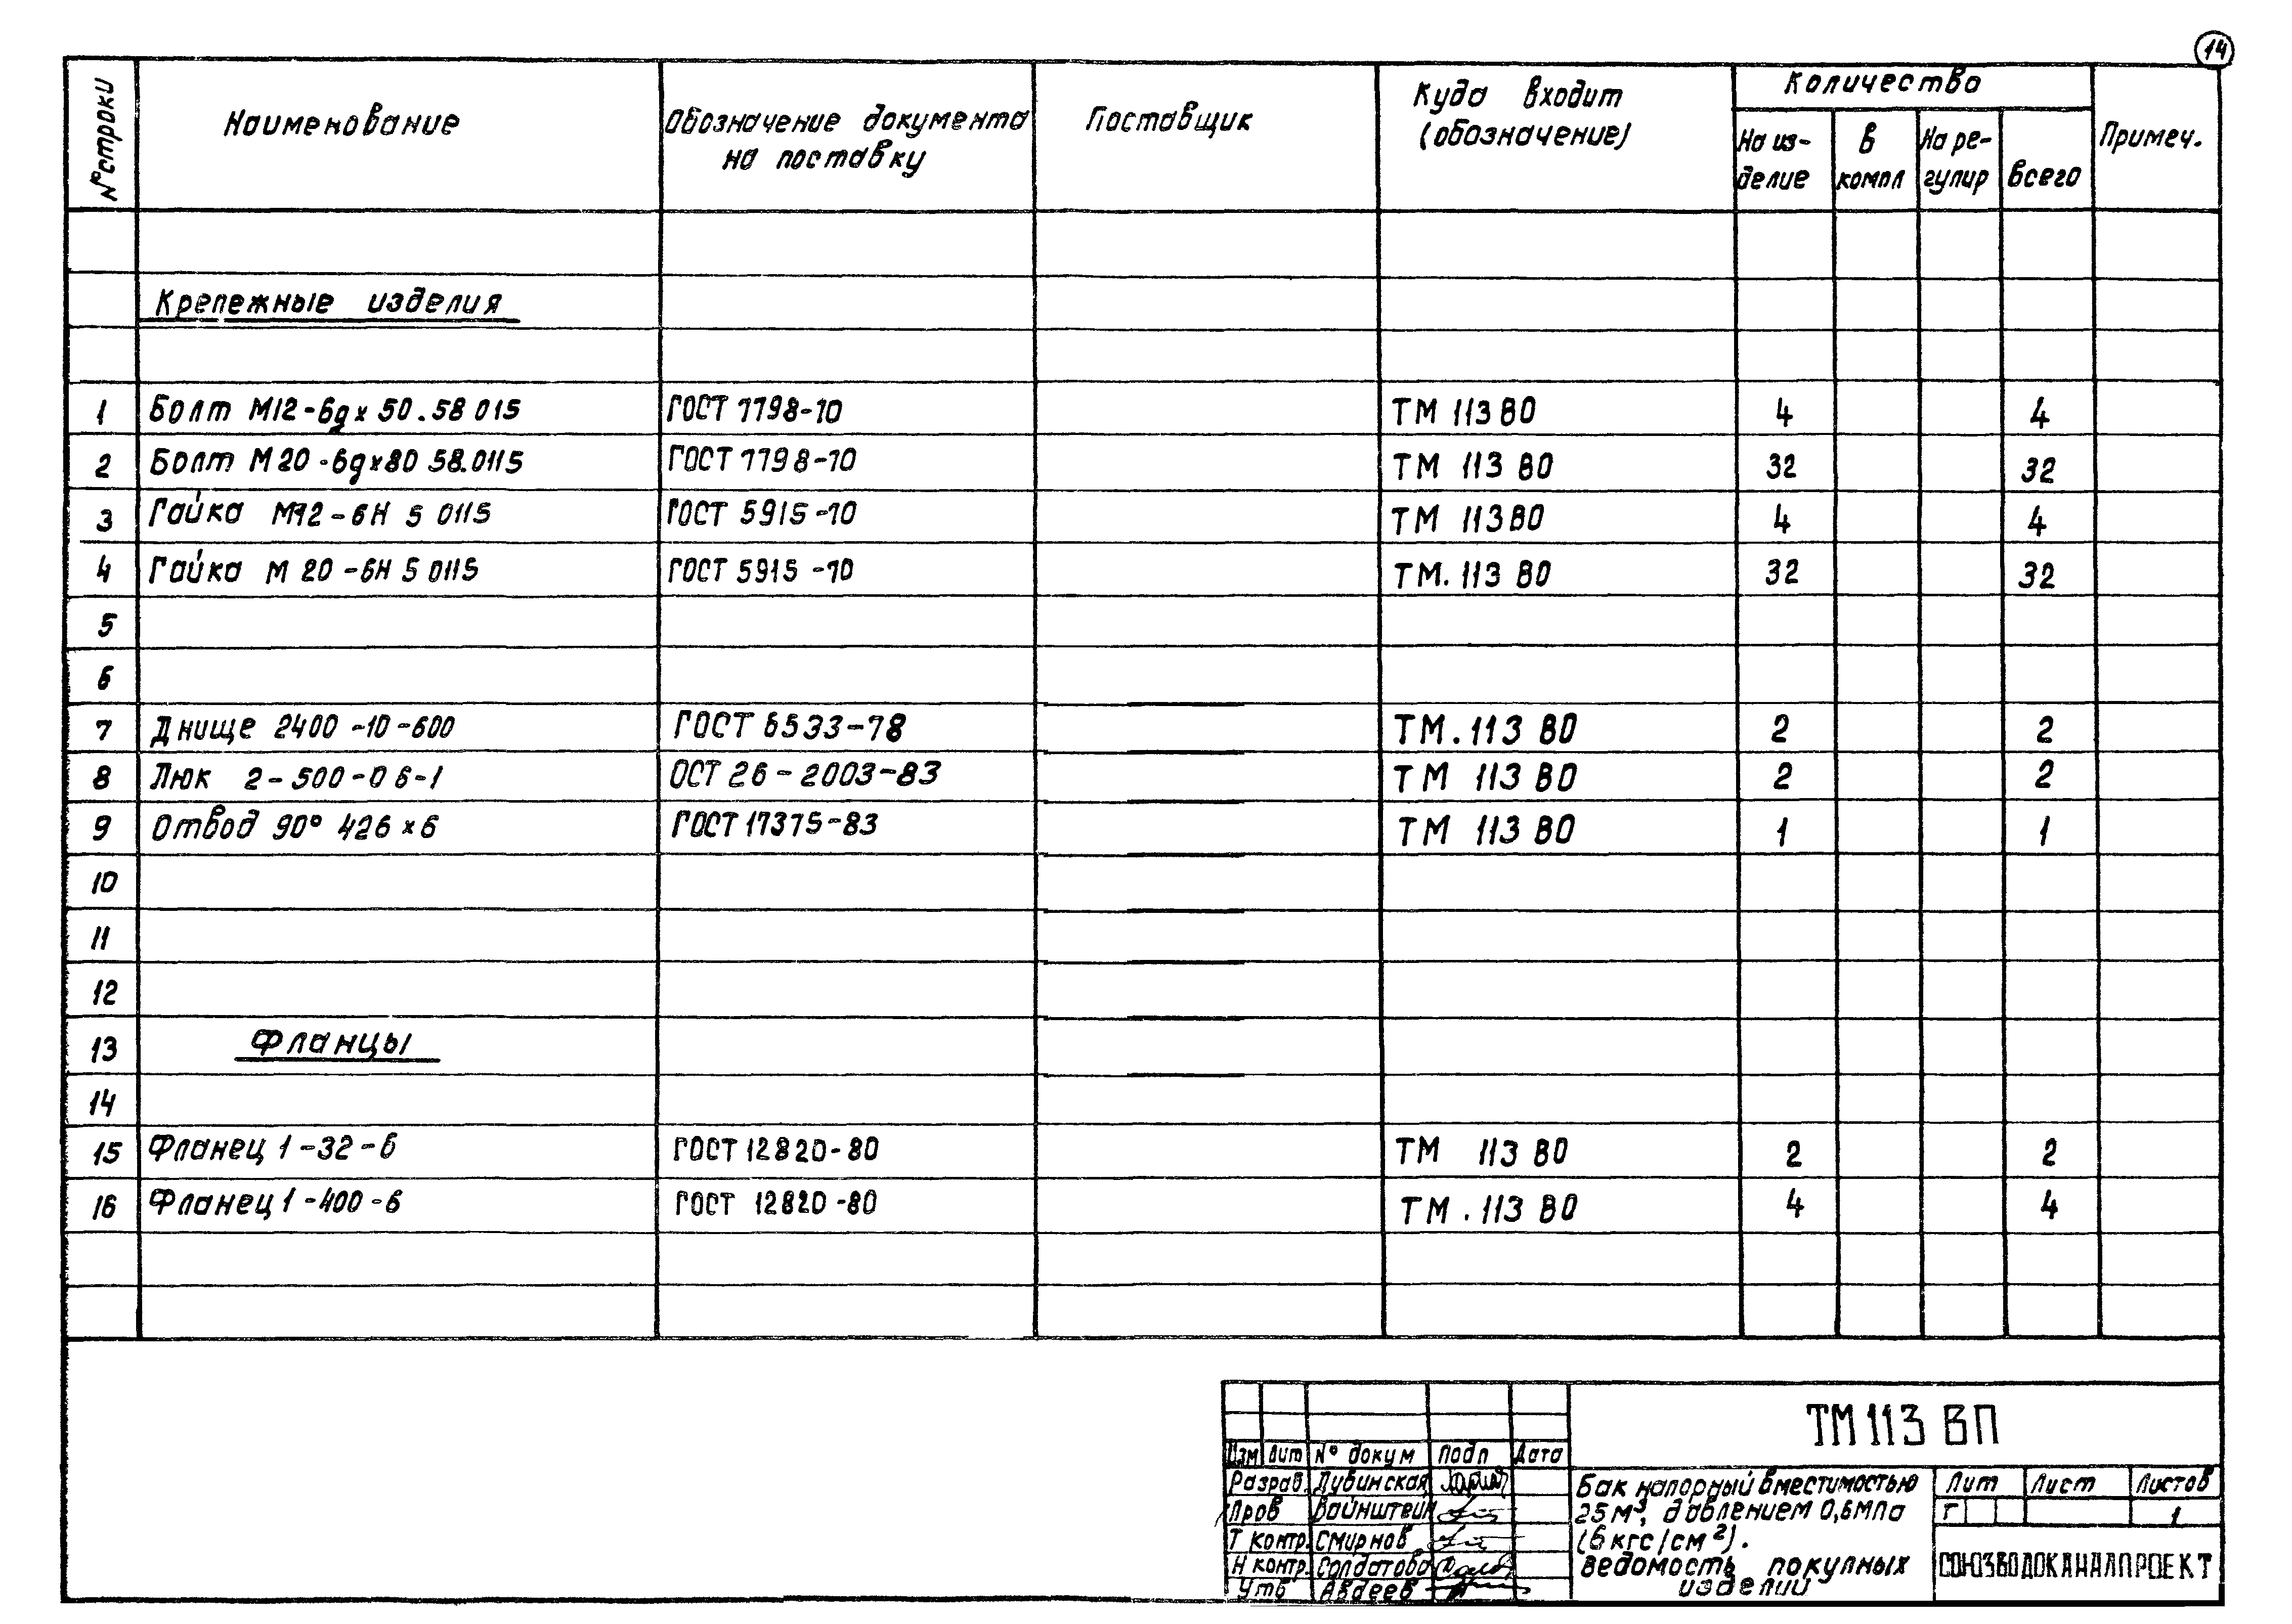 14
№ строки Наименование Обозначение документа на поставку Поставщик Куда входит (обозначение) Количество На из-делие в компл На ре-гулир всего Примеч.
Крепежные изделия
1 Болт М12-6gх50.58 015 ГОСТ 7798-70 ТМ 113 ВО 4 4
2 Болт М20-6gх80 58.0115 ГОСТ 7798-70 ТМ 113 ВО 32 32
3 Гайка М12-6Н 5 0115 ГОСТ 5915-70 ТМ 113 ВО 4 4
4 Гайка М 20-6Н 5 0115 ГОСТ 5915-70 ТМ. 113 ВО 32 32
5
6
7 Днище 2400-10-600 ГОСТ 6533-78 ТМ. 113 ВО 2 2
8 Люк 2-500-06-1 ОСТ 26-2003-83 ТМ 113 ВО 2 2
9 Отвод 90° 426×6 ГОСТ 17375-83 ТМ 113 ВО 1 1
10
11
12
13 Фланцы
14
15 Фланец 1-32-6 ГОСТ 12820-80 ТМ 113 ВО 2 2
16 Фланец 1-400-6 ГОСТ 12820-80 ТМ. 113 ВО 4 4
ТМ 113 ВП
Изм Лит № докум Подп Дата
Разраб. Дубинская
Пров Вайнштейн
Т контр. Смирнов
Н контр. Солдатова
Утв Авдеев
Бак напорный вместимостью
25 м³, давлением 0,6МПа
(6 кгс/см²).
Ведомость покупных
изделий
Лит Лист Листов
Г 1
СОЮЗВОДОКАНАЛПРОЕКТ